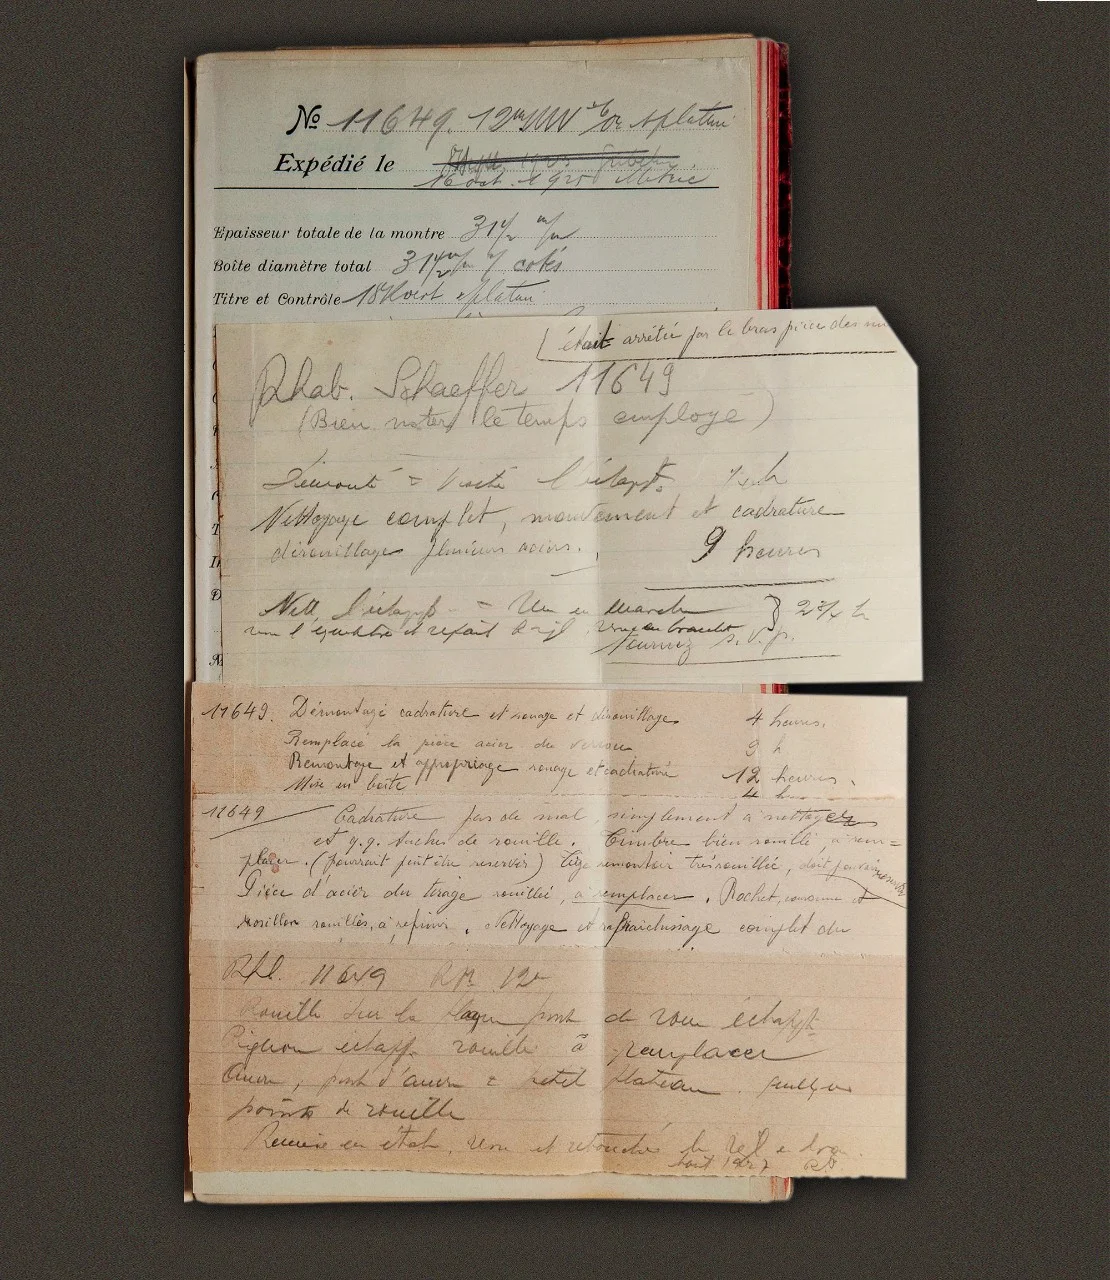 No 11649. 12 or platine
Expédié le
16 oct. 1925
Epaisseur totale de la montre 31 1/2 m/m
Boîte diamètre total 31 1/2 m/m cotés
Titre et Contrôle 18K vert platine
était arrêtée par le bras pièce des
Rhab. Schaeffer 11649
(Bien noter le temps employé)
Démonté = h
Nettoyage complet, mouvement et cadrature
dérouillage plusieurs aciers. 9 heures
Nett. = Mis en marche 2 3/4 h
l'équilibre et refait
Tournez s.v.p.
11649. Démontage cadrature et rouage et dérouillage 4 heures.
Remplacé la pièce acier du verrou 9 h
Remontage et appropriage rouage et cadrature 12 heures.
Mise en boîte 4 h
11649 Cadrature pas de mal, simplement à nettoyer
et q.q. taches de rouille. Timbre bien rouillé, à rem=
placer. (pourrait peut être reservir) Tige remontoir très rouillée, doit
Pièce d'acier du tirage rouillé, à remplacer. Rochet, couronne et
rouillés, à refinir. Nettoyage et rafraîchissage complet du
Rhl. 11649 RM 12
Rouille sur la pont de roue échapt.
Pignon échapp. rouillé à remplacer
Ancre, pont d'ancre = petit plateau. quelques
points de rouille
Remise en état, revu et retouché le
Août 1927